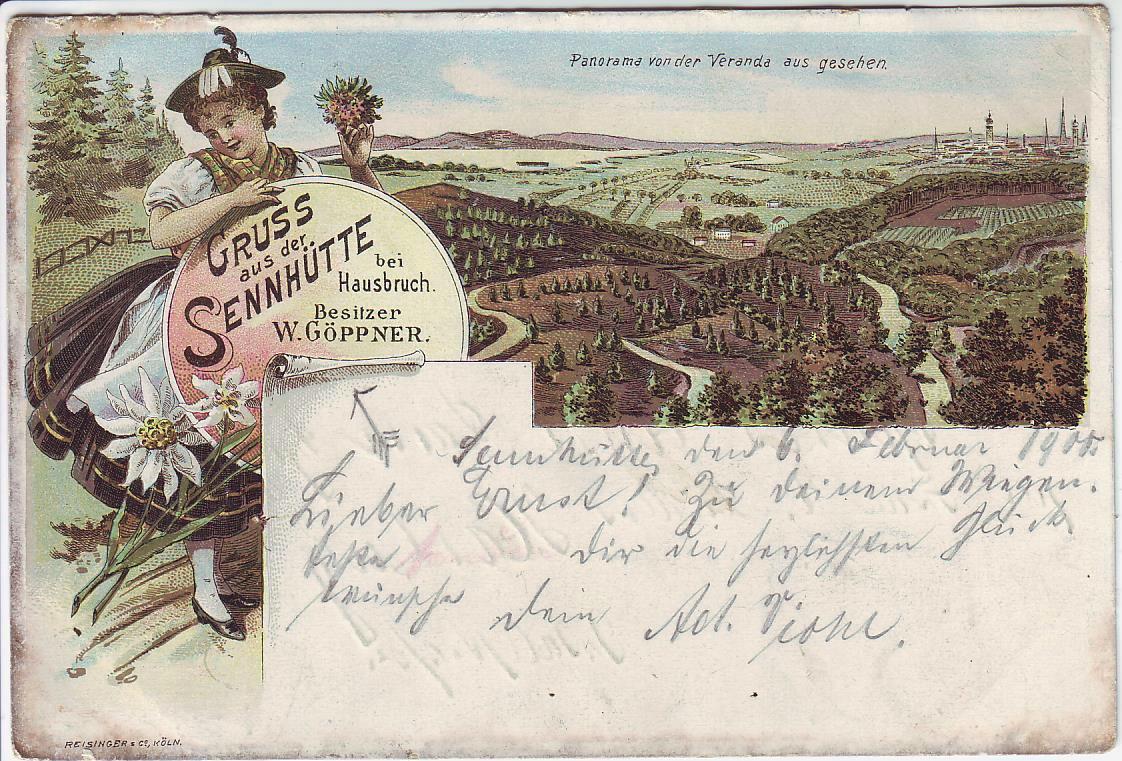 Panorama von der Veranda aus gesehen.
GRUSS
aus der
SENNHÜTTE
bei
Hausbruch.
Besitzer
W. GÖPPNER.
Sennhütte, den 6. Februar 1900
Lieber Ernst! Zu deinem Wiegen-
feste dir die herzlichsten Glück
wünsche dein Ad.
REISINGER & Co, KÖLN.